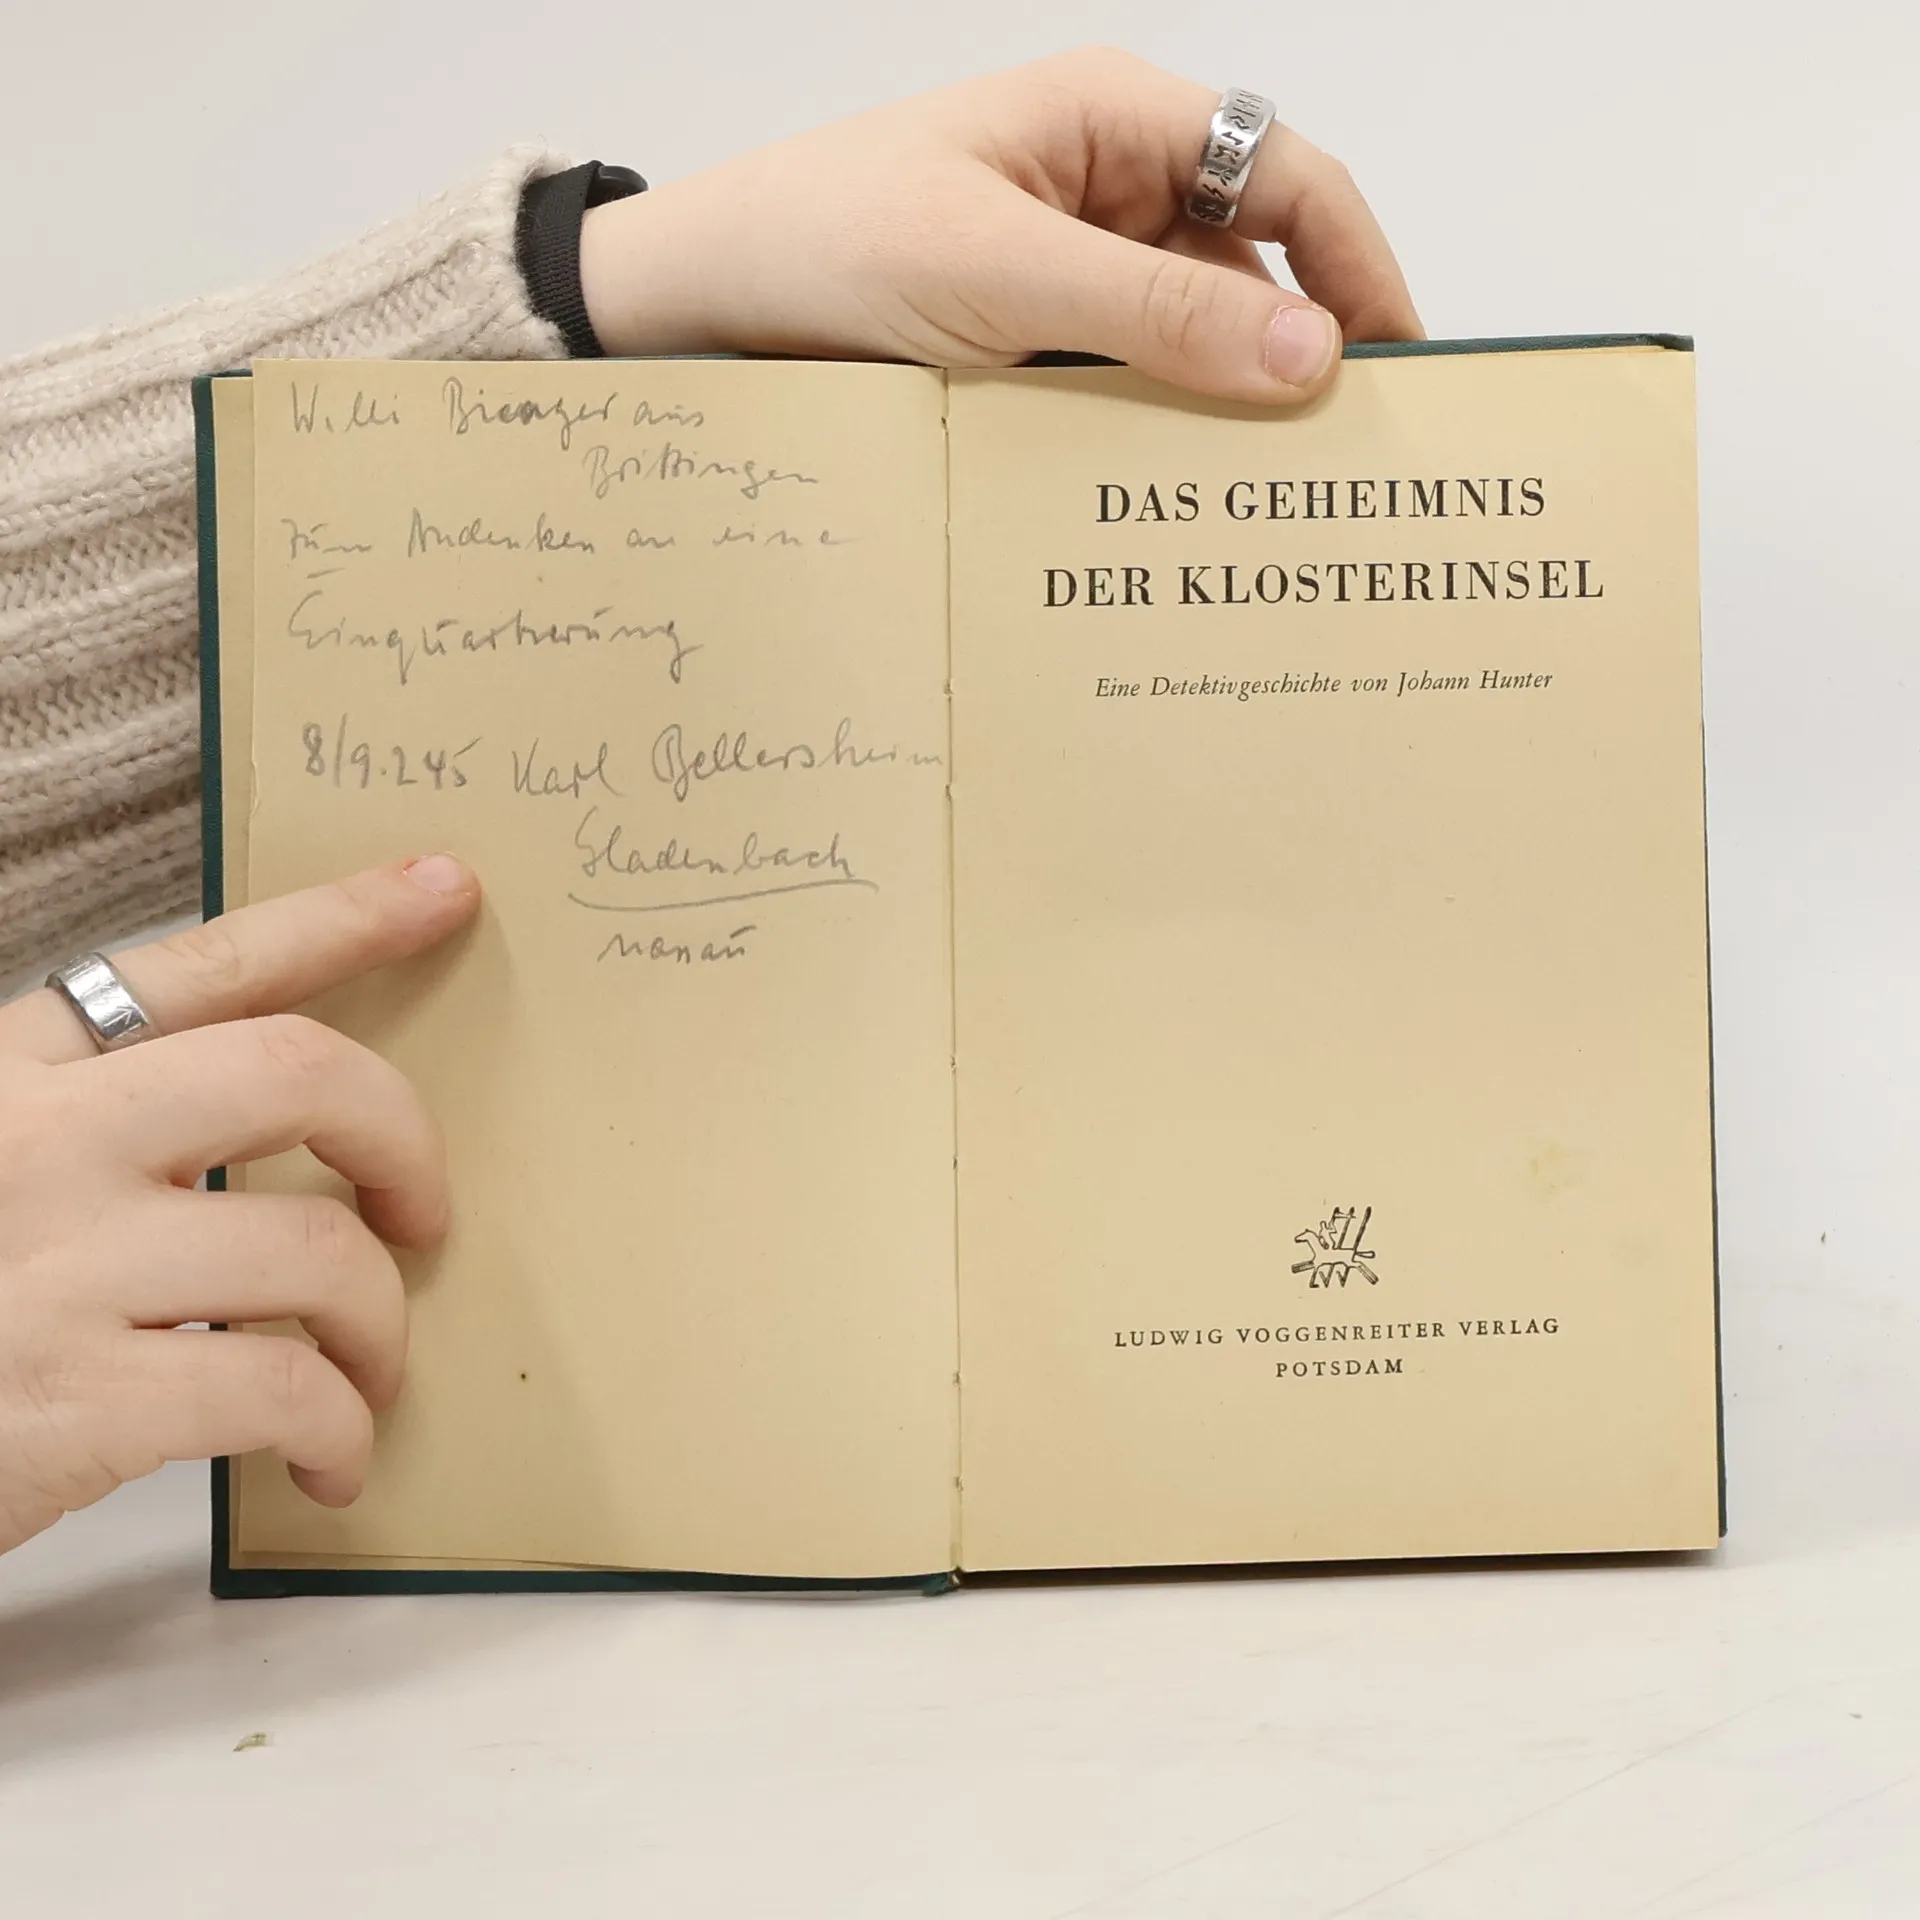 Willi aus
zum Andenken an eine
Einquartierung
8/9.2.45 Karl Bellersheim
Gladenbach
DAS GEHEIMNIS
DER KLOSTERINSEL
Eine Detektivgeschichte von Johann Hunter
LUDWIG VOGGENREITER VERLAG
POTSDAM